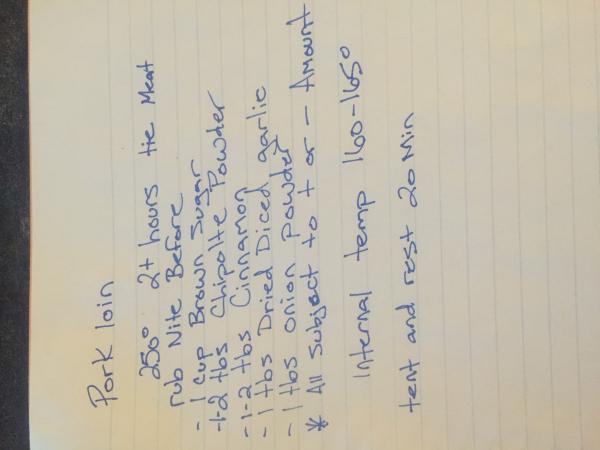 Pork loin
250° 2+ hours tie Meat
rub Nite Before
- 1 cup Brown Sugar
-1-2 tbs Chipolte Powder
-1-2 tbs Cinnamon
- 1 tbs Dried Diced garlic
- 1 tbs onion Powder
* All Subject to + or - Amount
Internal temp 160-165°
tent and rest 20 Min